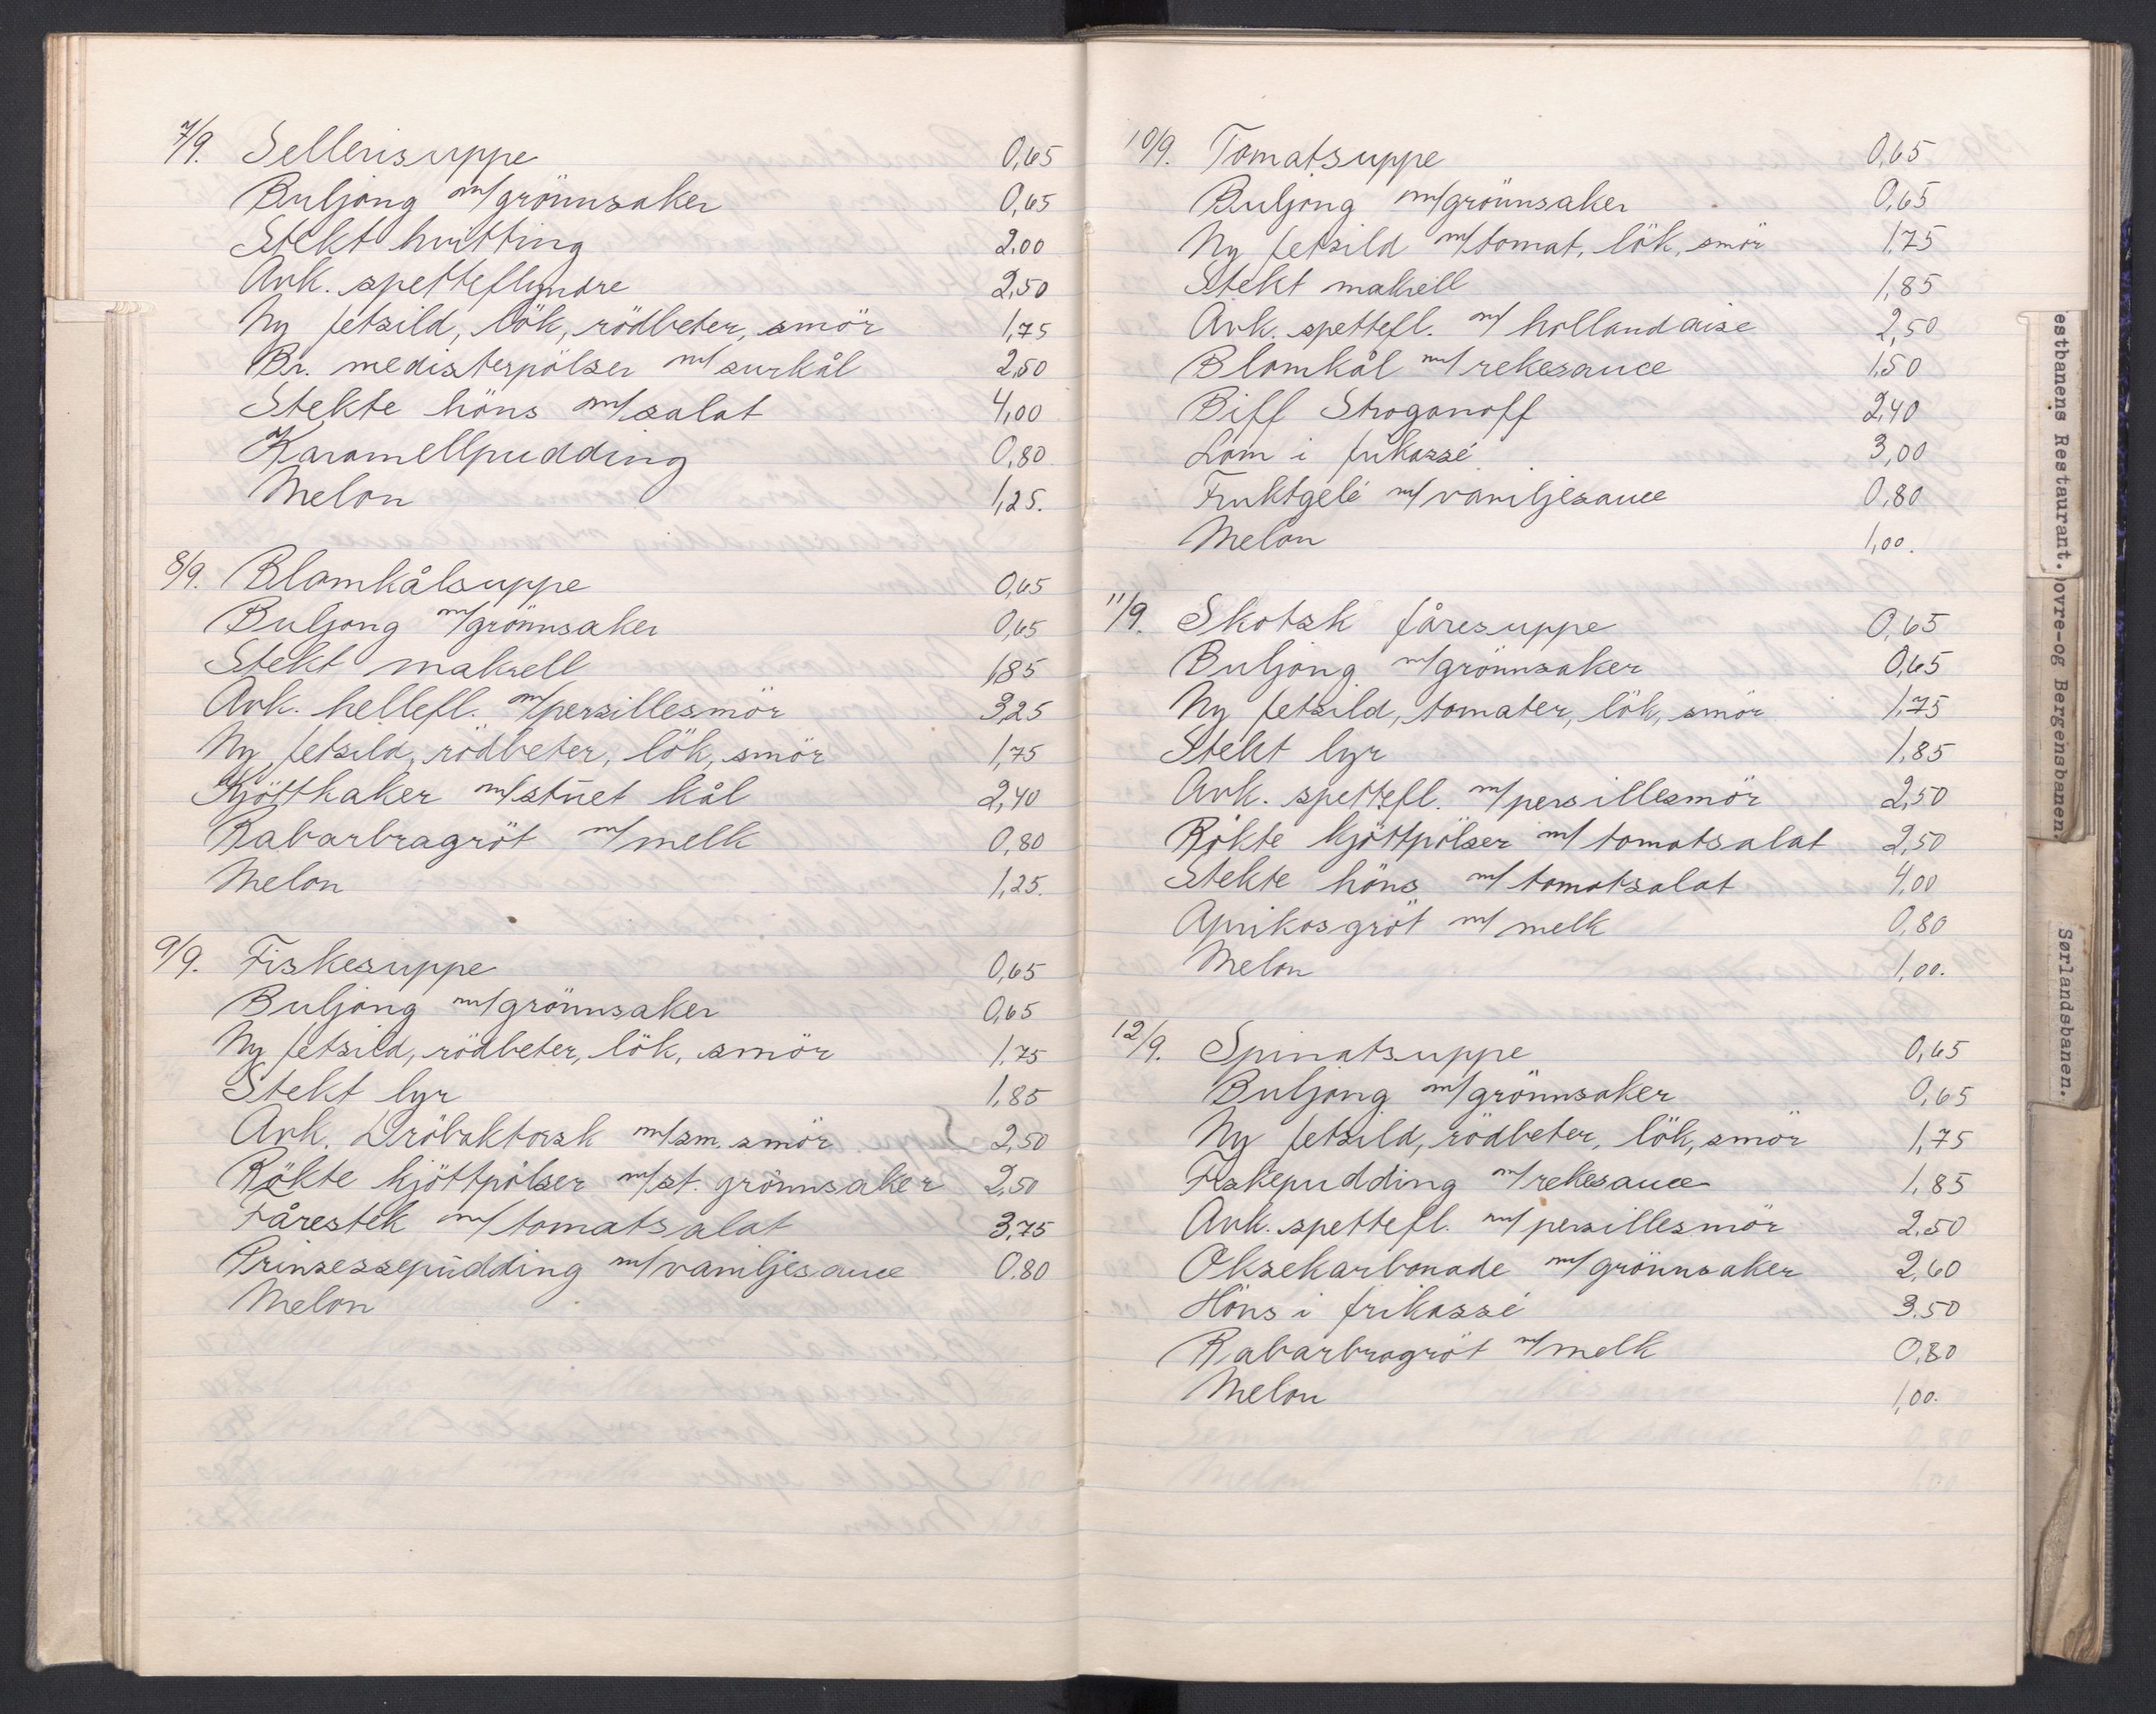 7/9. Sellerisuppe 0,65
Buljong m/grönnsaker 0,65
Stekt hvitting 2.00
Avk. spetteflyndre 2,50
Ny fetsild, lök, rödbeter, smör 1,75
Br. medisterpölser m/surkål 2,50
Stekte höns m/salat 4,00
Karamellpudding 0,80
Melon 1,25.
8/9. Blomkålsuppe 0,65
Buljong m/grönnsaker 0,65
Stekt makrell 1,85
Avk. hellefl. m/persillesmör 3,25
Ny fetsild, rödbeter, lök, smör 1,75
Kjöttkaker m/stuet kål 2,40
Rabarbragröt m/melk 0,80
Melon 1,25.
9/9. Fiskesuppe 0,65
Buljong m/grönnsaker 0,65
Ny fetsild, rödbeter, lök, smör 1,75
Stekt lyr 1,85
Avk. Dröbaktorsk m/sm. smör 2,50
Rökte kjöttpölser m/st. grönnsaker 2,50
Fårestek m/tomatsalat 3,75
Prinsessepudding m/vaniljesauce 0.80
Melon
10/9. Tomatsuppe 0,65
Buljong m/grönnsaker 0,65
Ny fetsild m/tomat, lök, smör 1,75
Stekt makrell 1,85
Avk. spettefl. m/ hollandaise 2,50
Blomkål m/rekesauce 1,50
Biff Stroganoff 2,40
Lam i frikassé 3,00
Fruktgelé m/vaniljesauce 0,80
Melon 1,00.
11/9. Skotsk fåresuppe 0,65
Buljong m/grönnsaker 0,65
Ny fetsild, tomater, lök, smör 1,75
Stekt lyr 1,85
Avk. spettefl. m/persillesmör 2,50
Rökte kjöttpölser m/ tomatsalat 2,50
Stekte höns m/ tomatsalat 4,00
Aprikosgröt m/ melk 0,80
Melon 1,00.
12/9. Spinatsuppe 0,65
Buljong m/grönnsaker 0,65
Ny fetsild, rödbeter, lök, smör 1,75
Fiskepudding m/rekesauce 1,85
Avk. spettefl. m/persillesmör 2,50
Oksekarbonade m/grönnsaker 2,60
Höns i frikassé 3.50
Rabarbragröt m/melk 0,80
Melon 1,00.
estbanens Restaurant.
ovre-og Bergensbanen
Sørlandsbanen.